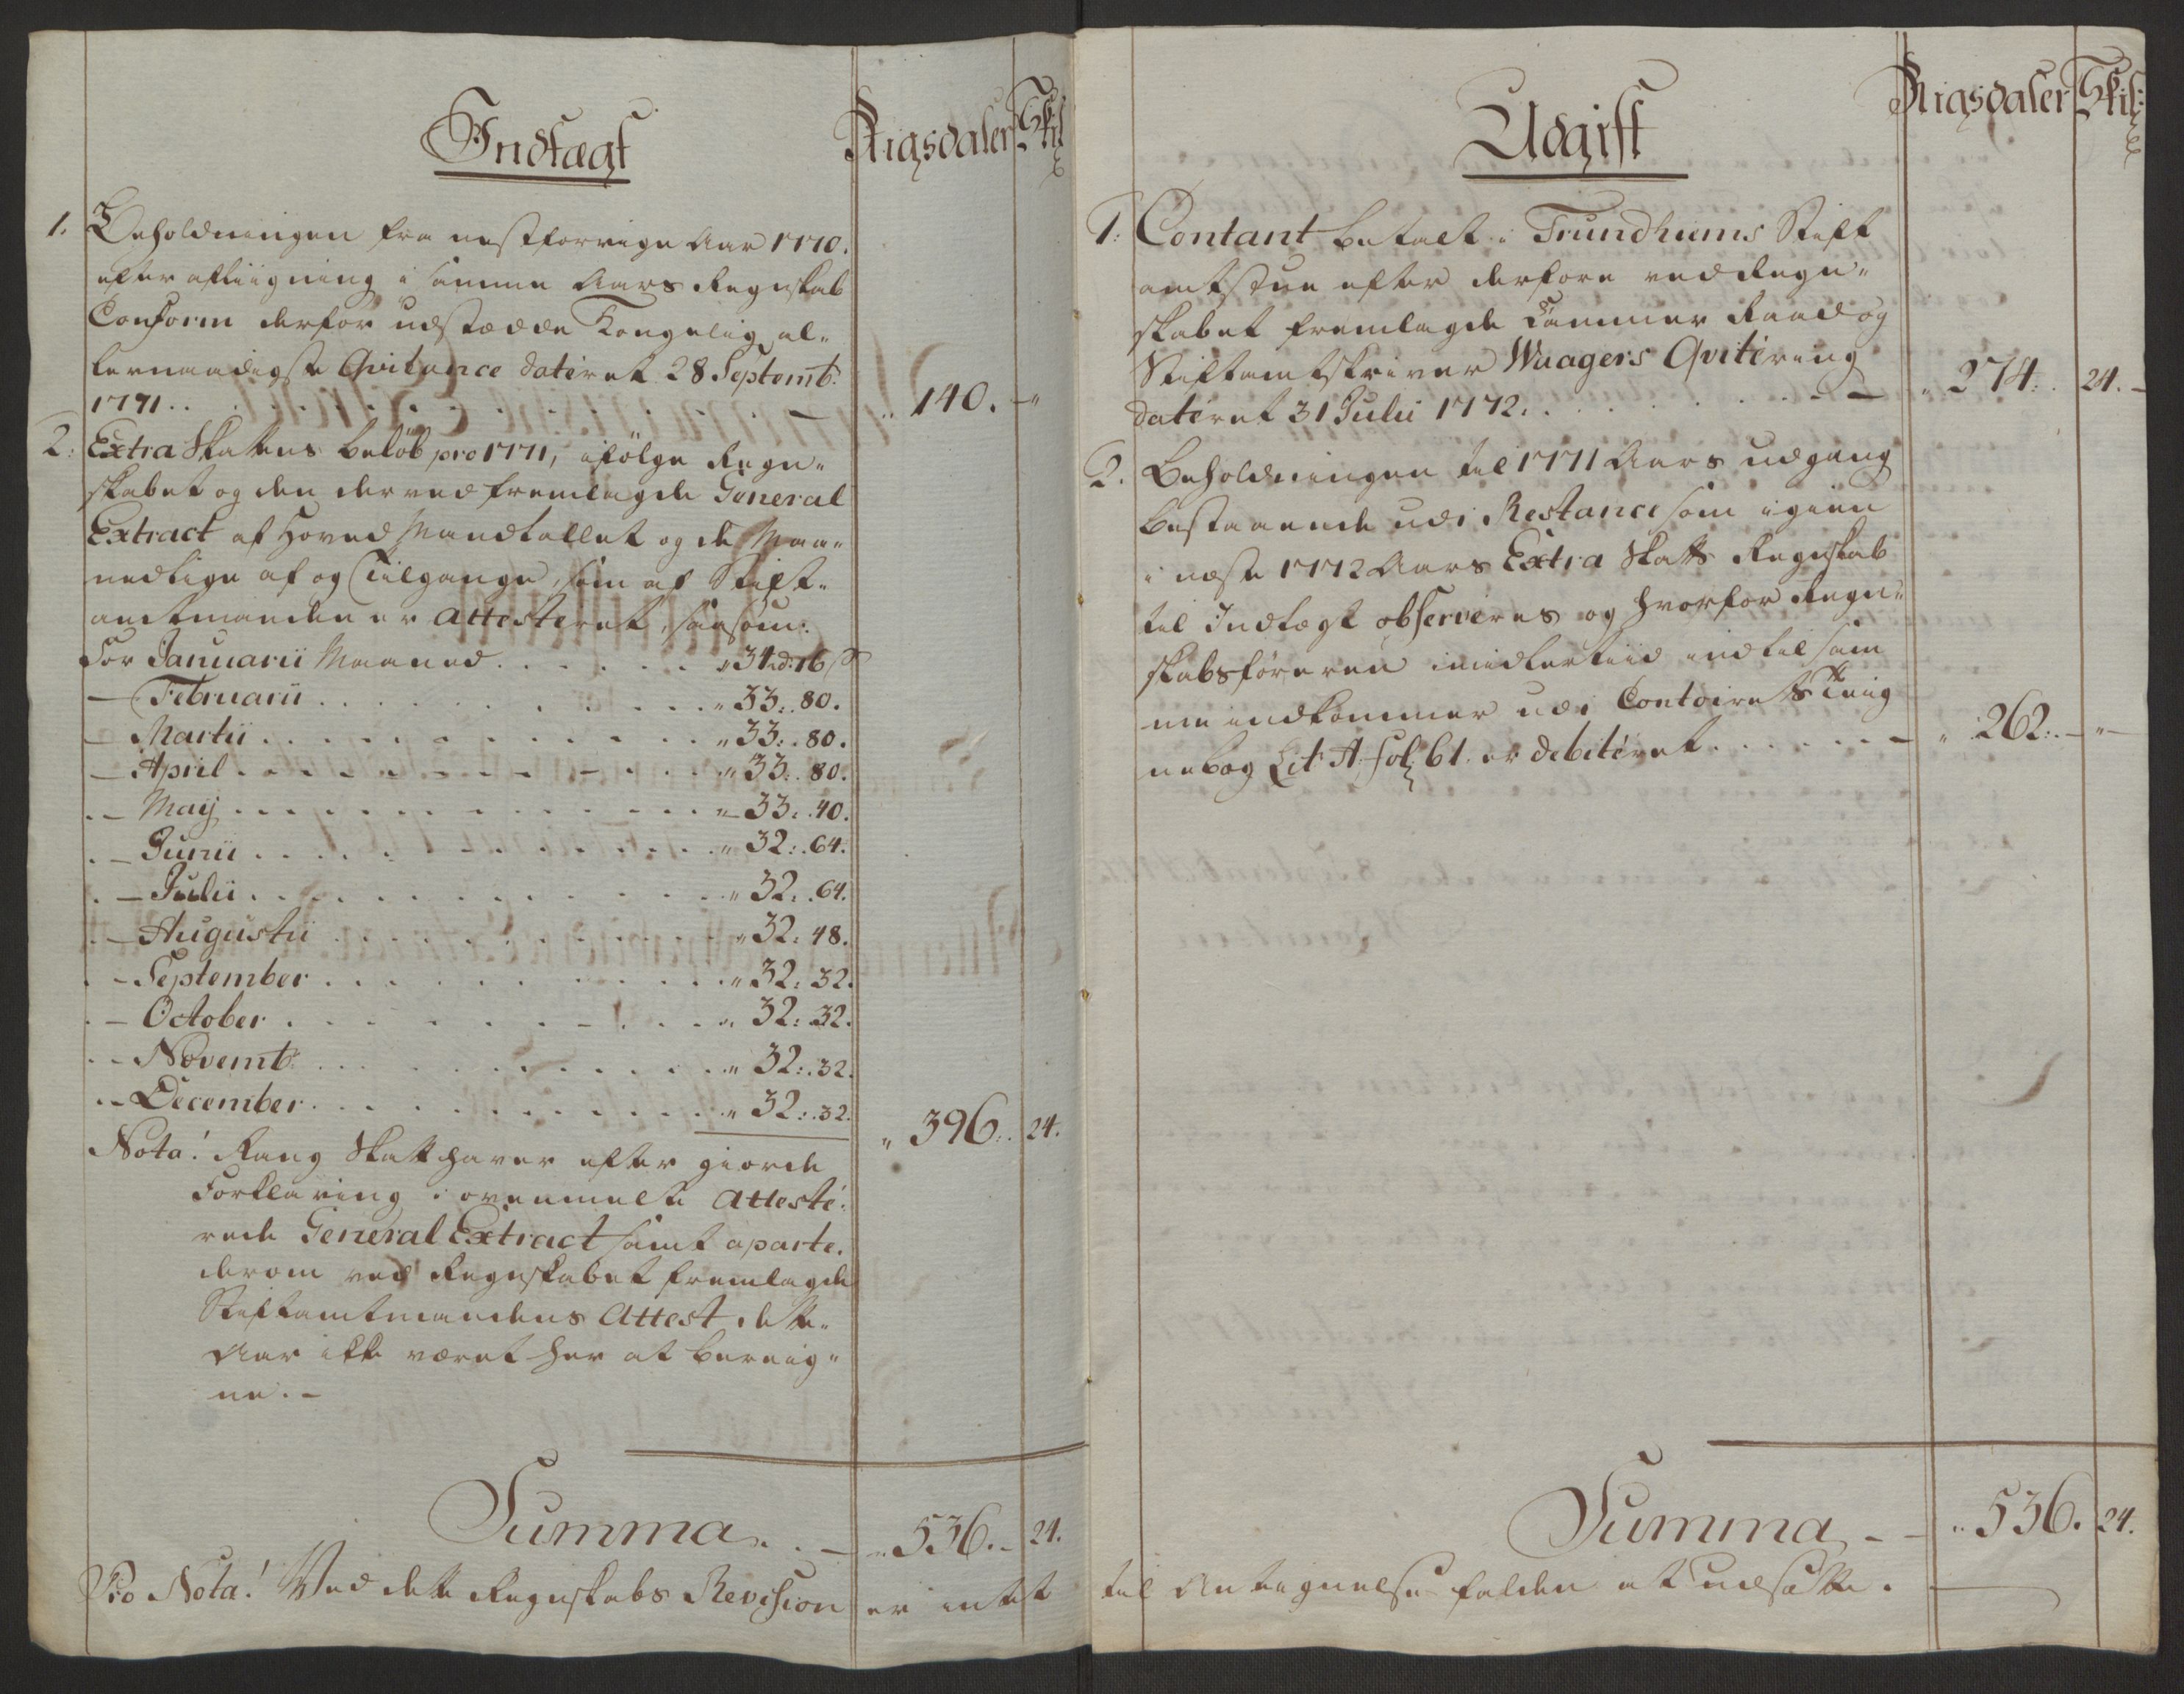 Indtægt
Rigsdaler Skil
1. Beholdningen fra nestforrige Aar 1770.
efter afliigning i samme Aars Regnskab
Conform derfor udstædde Kongelig al-
lernaadigste Qvitance dateret 28 Septemb:
1771 . . . . . . . . . . " 140. - "
2. Extra Skatens beløb pro 1771, ifølge Regn-
skabet og den derved fremlagde General
Extract af Hoved Mandtallet og de Maa-
nedlige af og Tilgange, som af Stift-
amtmanden er Attesteret, saasom:
For Januarii Maaned . . . . . " 34 rd: 16 s
- Februarii . . . . . . . . " 33: 80.
- Martii . . . . . . . . " 33: 80.
- April . . . . . . . . " 33: 80.
- Maij . . . . . . . . " 33: 40.
- Junii . . . . . . . . " 32: 64.
- Julii . . . . . . . . " 32: 64.
- Augustii . . . . . . . . " 32: 48.
- September . . . . . . . . " 32: 32.
- October . . . . . . . . " 32: 32.
- Novemb: . . . . . . . . " 32: 32.
- December . . . . . . . . " 32: 32.
" 396: 24.
Nota! Rang Skatt haver efter giorde
Forklaring i ovenmelte Atteste-
rede General Extract samt aparte
derom ved Regnskabet fremlagde
Stiftamtmandens Attest, dette
Aar ikke været her at bereig-
ne. -
Summa . . - " 536. - 24.
Pro Nota! Ved dette Regnskabs Revision er intet til Antegnelse falden at udsætte.
Udgift
Rigsdaler Skil:
1: Contant betalt i Trundhiems Stift
amtstue efter derfore ved Regn-
skabet fremlagde Cammer Raad og
Stiftamtskriver Waagers Qvitering
dateret 31 Julii 1772. . . . . . . - " 274: 24. -
2. Beholdningen til 1771 Aars udgang
bestaaende udi Restance som igien
i neste 1772 Aars Extra Skatts Regnskab
til Indtægt observeres og hvorfor Regn-
skabsføreren imidlertiid indtil sam
me indkommer udi Contoirets
nebog Lit: A fol: 61. er debiteret . . . . . - " 262: - " -
Summa - - " 536. 24.